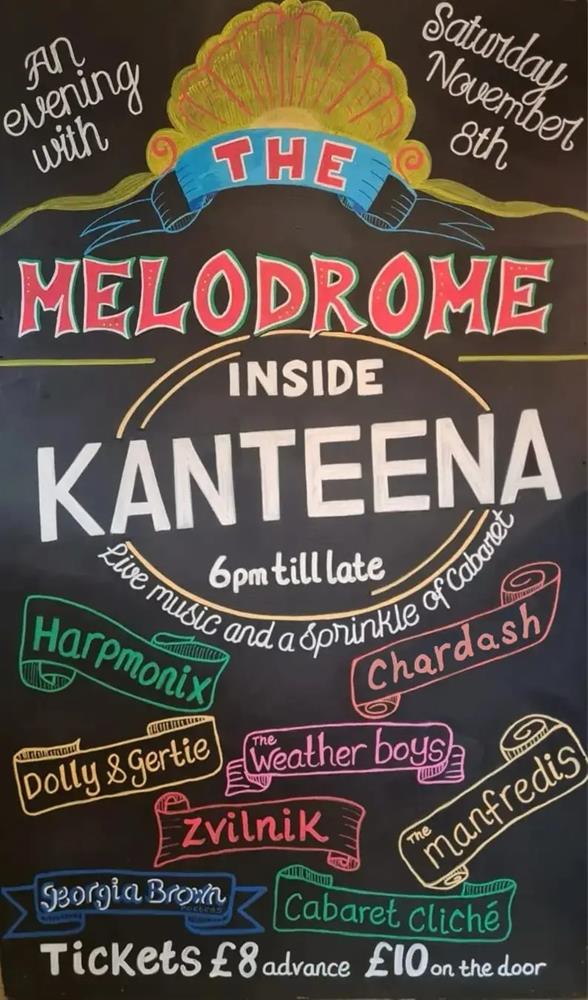 An
evening
with
Saturday
November
8th
THE
MELODROME
INSIDE
KANTEENA
6pm till late
Live music and a sprinkle of Cabaret
Harpmonix
Chardash
Dolly & Gertie
The Weather boys
The Manfredis
Zvilnik
Georgia Brown
Cabaret Cliché
Tickets £8 advance £10 on the door